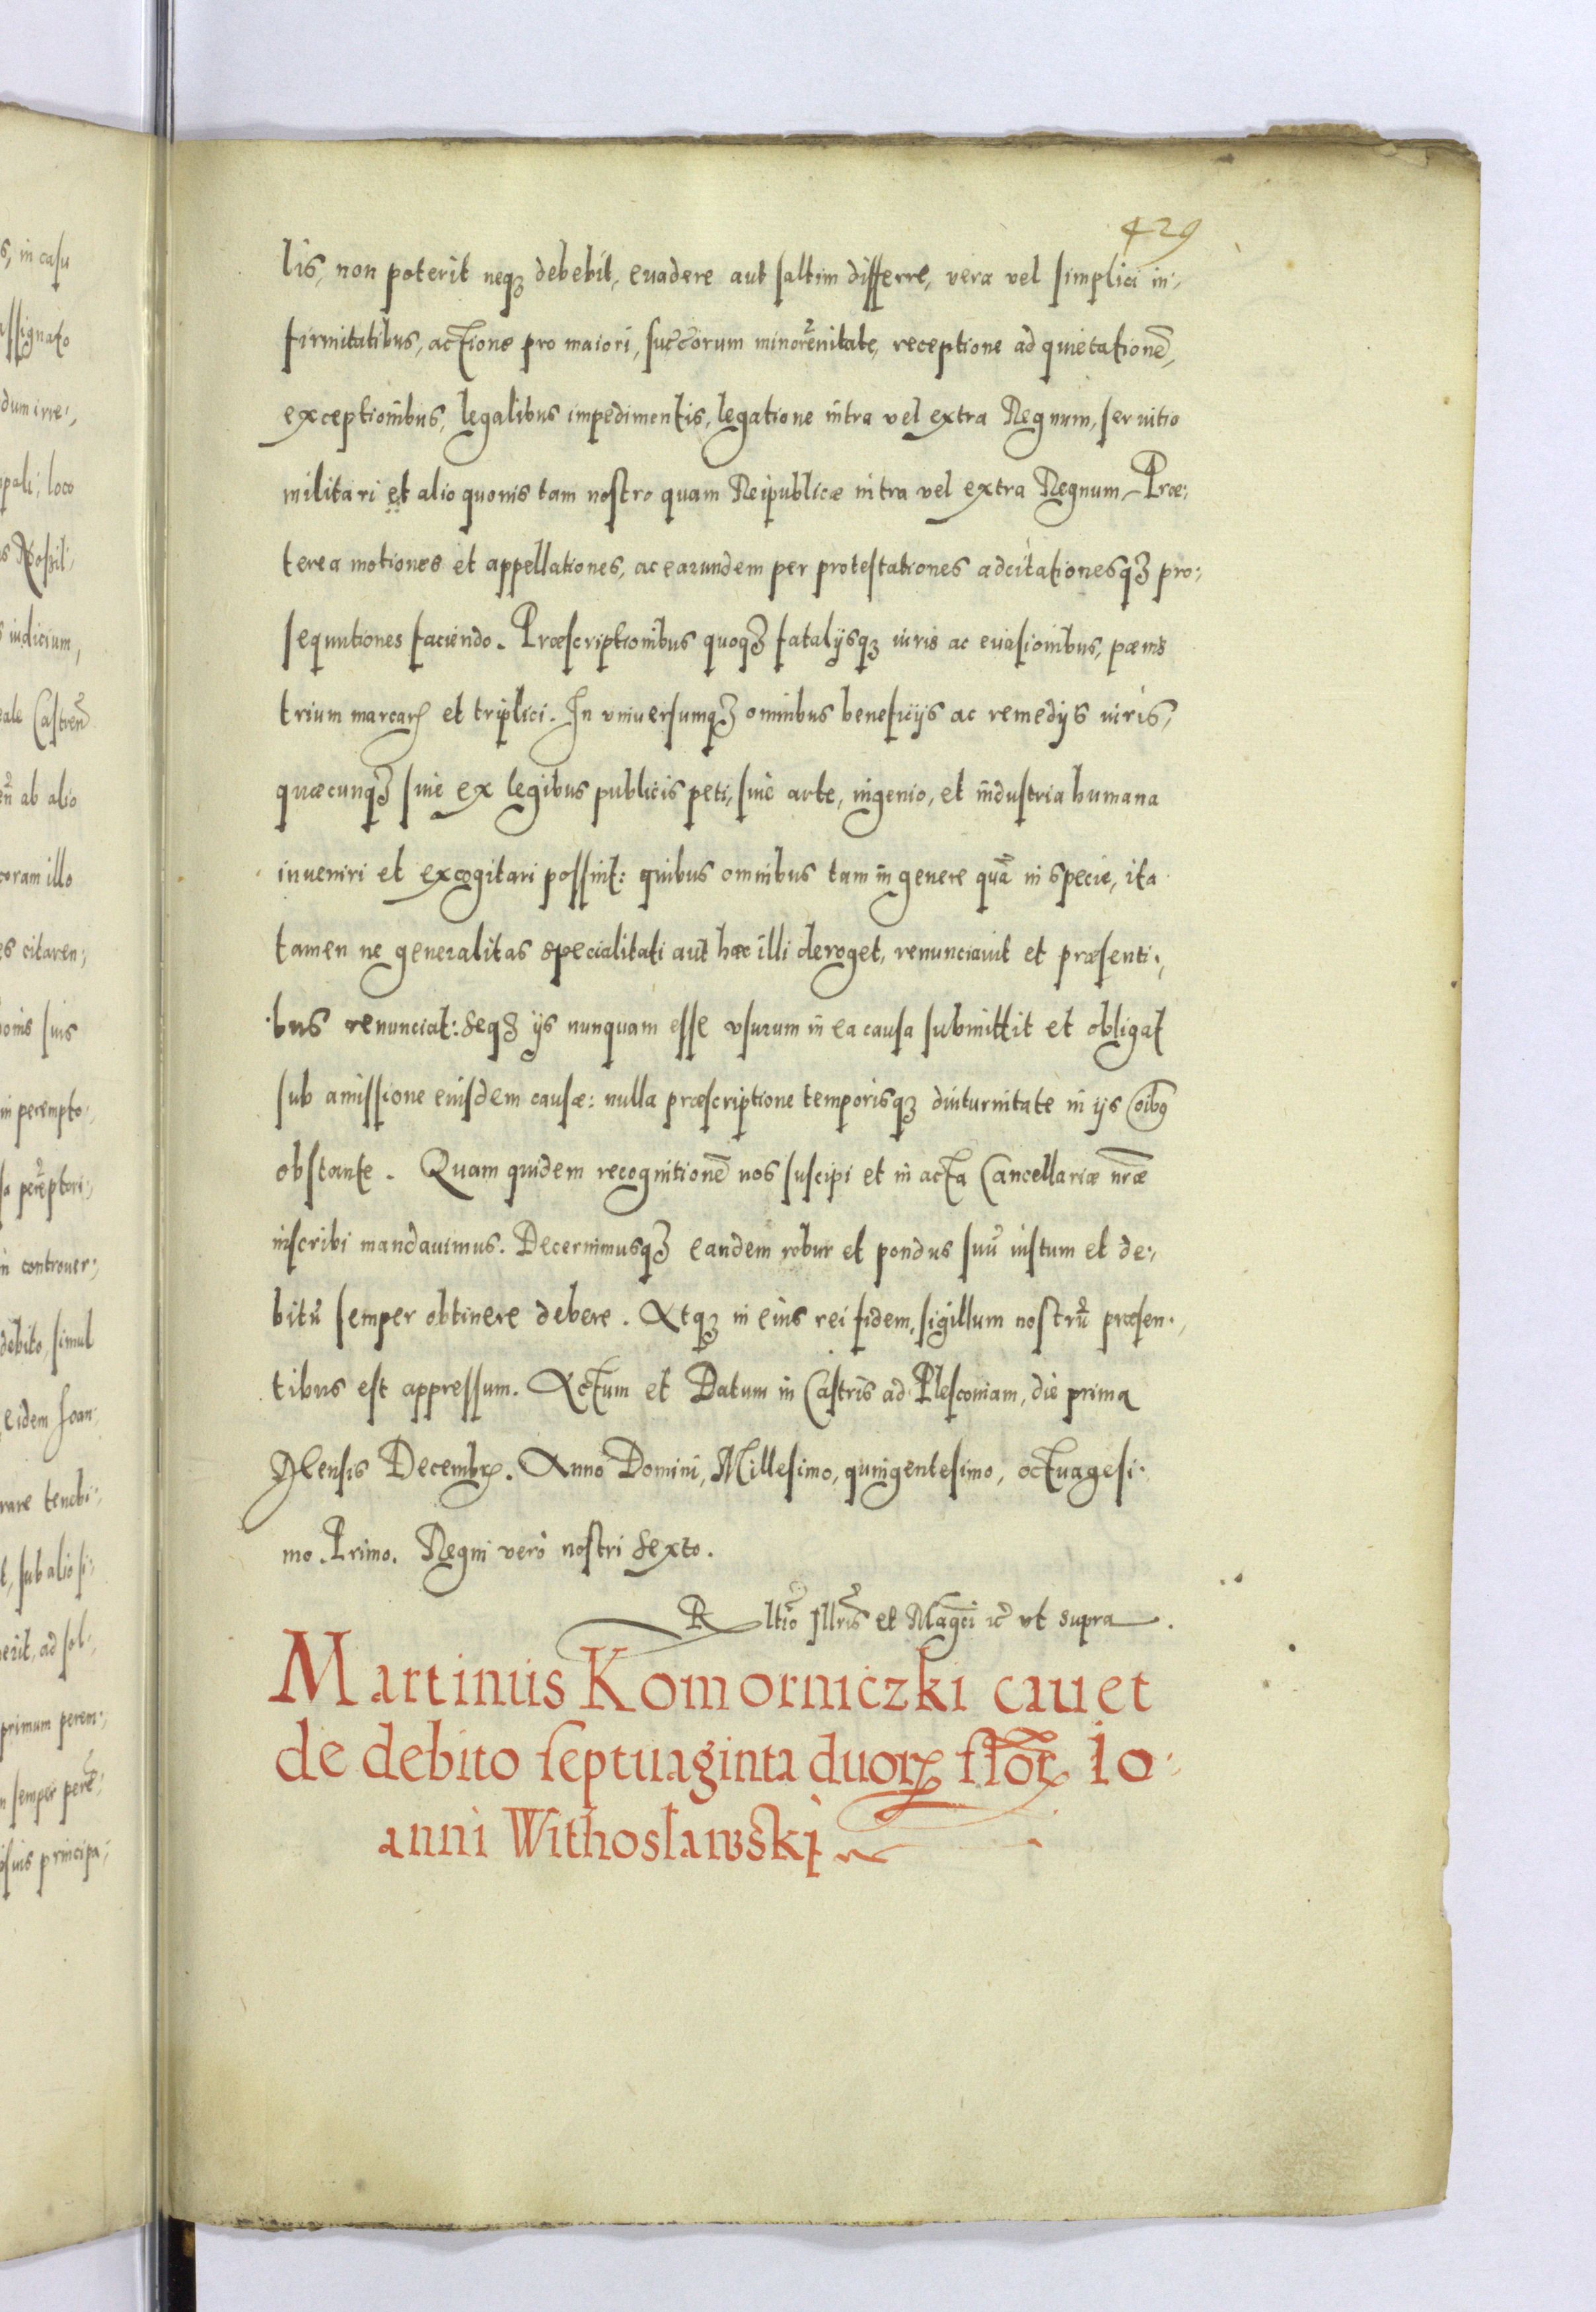 429
lis, non poterit neqꝫ debebit, euadere aut saltim differre, vera vel simplici in⸗
firmitatibus, actione pro maiori, succ̃orum minorẽnitate, receptione ad quietationẽ,
exceptionibus, legalibus impedimentis, legatione intra vel extra Regnum, seruitio
militari et alio quouis tam nostro quam Reipublicæ intra vel extra Regnum, Præ:
terea motiones et appellationes, ac earundem per protestationes adcitationesqꝫ pro:
sequutiones faciendo. Præscriptionibus quoqꝫ fatalijsqꝫ iuris ac euasionibus, pænis
trium marcarꝭ et triplici. In vniuersumqꝫ omnibus beneficijs ac remedijs iuris,
quæcunqꝫ siue ex legibus publicis peti, siue arte, ingenio, et industria humana
inueniri et excogitari possint: quibus omnibus tam in genere quã in specie, ita
tamen ne generalitas specialitati aut hæc illi deroget, renunciauit et præsenti:,
bus renunciat: seqꝫ ijs nunquam esse vsurum in ea causa submittit et obligat
sub amissione eiusdem causæ: nulla præscriptione temporisqꝫ diuturnitate in ijs oĩbꝯ
obstante. Quam quidem recognitionẽ nos suscipi et in acta Cancellariæ nr̃æ
inscribi mandauimus. Decernimusqꝫ eandem robur et pondus suũ iustum et de:,
bitũ semper obtinere debere. Atqꝫ in eius rei fidem, sigillum nostrũ præsen:,
tibus est appressum. Actum et Datum in Castris ad Plesconiam, die prima
Mensis Decembrꝭ. Anno Domini, Millesimo, quingentesimo, octuagesi:
mo. Primo. Regni vero nostri sexto.
R ltio Illris et Magci ic̃ vt supra.
Martinus Komorniczki cauet
de debito septuaginta duorꝝ flõrꝝ Io:
anni Withoslawski
s, in casu
assignato
dum irre:,
pali, loco
s Nobil:
s iudicium,
eale Castreñ
eñ ab alio
coram illo
es citaren:
ionis suis
in perempto:
sa perẽptori:,
in controuer:,
debito, simul
eidem Ioan:
rare tenebi:,
t, sub alio si:
erit, ad sol:,
primum perem:,
n semper perẽ:
suis principa: